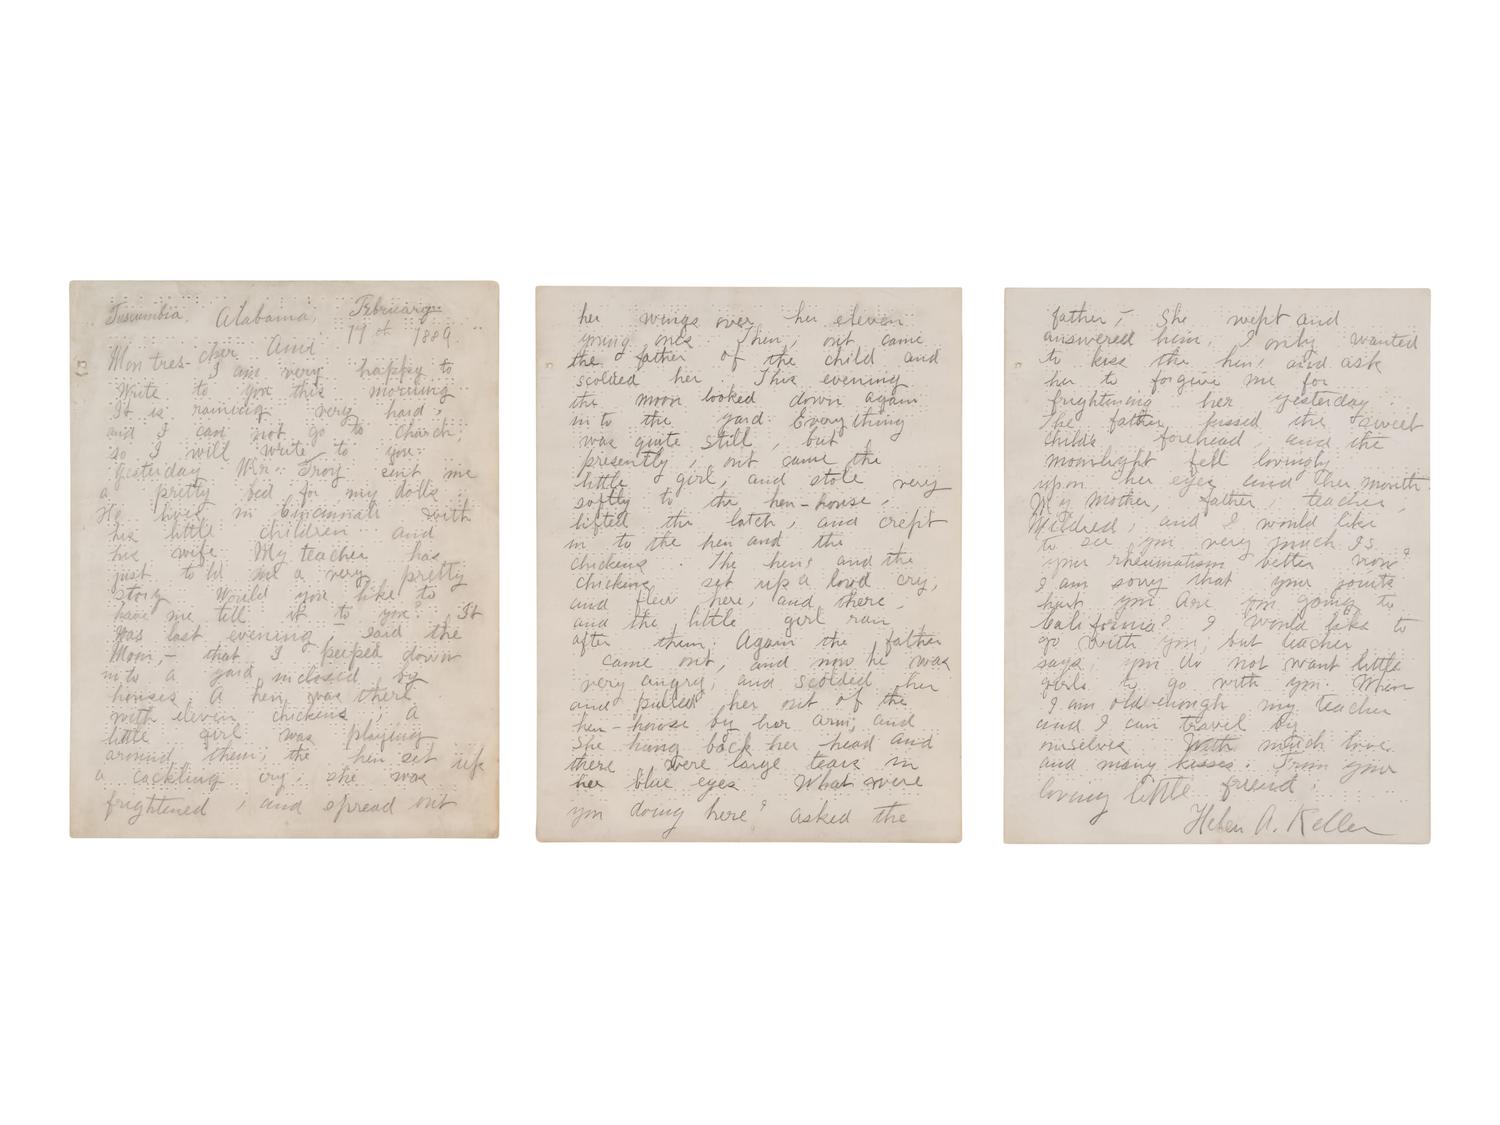 Tuscumbia, Alabama, February
17 of 1889.
Mon tres-cher Ami
I am very happy to
Write to you this morning
It is raining very hard,
and I can not go to Church,
so I will write to you.
Yesterday Mr. Troy sent me
a pretty bed for my dolls.
He lives in Cincinnati with
his little children and
his wife My teacher has
just told me a very pretty
story Would you like to
have me tell it to you? It
was last evening, said the
Moon,– that I peeped down
in to a yard inclosed by
houses. A hen was there
with eleven chickens; a
little girl was playing
around them; the hen set up
a cackling cry; she was
frightened, and spread out
her wings over her eleven
young ones. Then, out came
the father of the child and
scolded her. This evening
the moon looked down again
in to the yard. Everything
was quite still, but
presently, out came the
little girl, and stole very
softly to the hen-house,
lifted the latch, and crept
in to the hen and the
chickens. The hens and the
chickens set up a loud cry,
and flew here, and there,
and the little girl ran
after them; Again the father
came out, and now he was
very angry, and scolded her
and pulled her out of the
hen-house by her arm; and
She hung back her head and
there were large tears in
her blue eyes What were
you doing here? asked the
father,– She wept and
answered him, I only wanted
to kiss the hens and ask
her to forgive me for
frightening her yesterday.
The father kissed the sweet
childs forehead and the
moonlight fell lovingly
upon her eyes and her mouth.
My mother, father, teacher,
Mildred, and I would like
to see you very much Is
your rheumatism better now?
I am sorry that your joints
hurt you Are you going to
California? I would like to
go with you, but teacher
says, you do not want little
girls to go with you. When
I am old enough my teacher
and I can travel by
ourselves With much love
and many kisses. From your
loving little friend,
Helen A. Keller